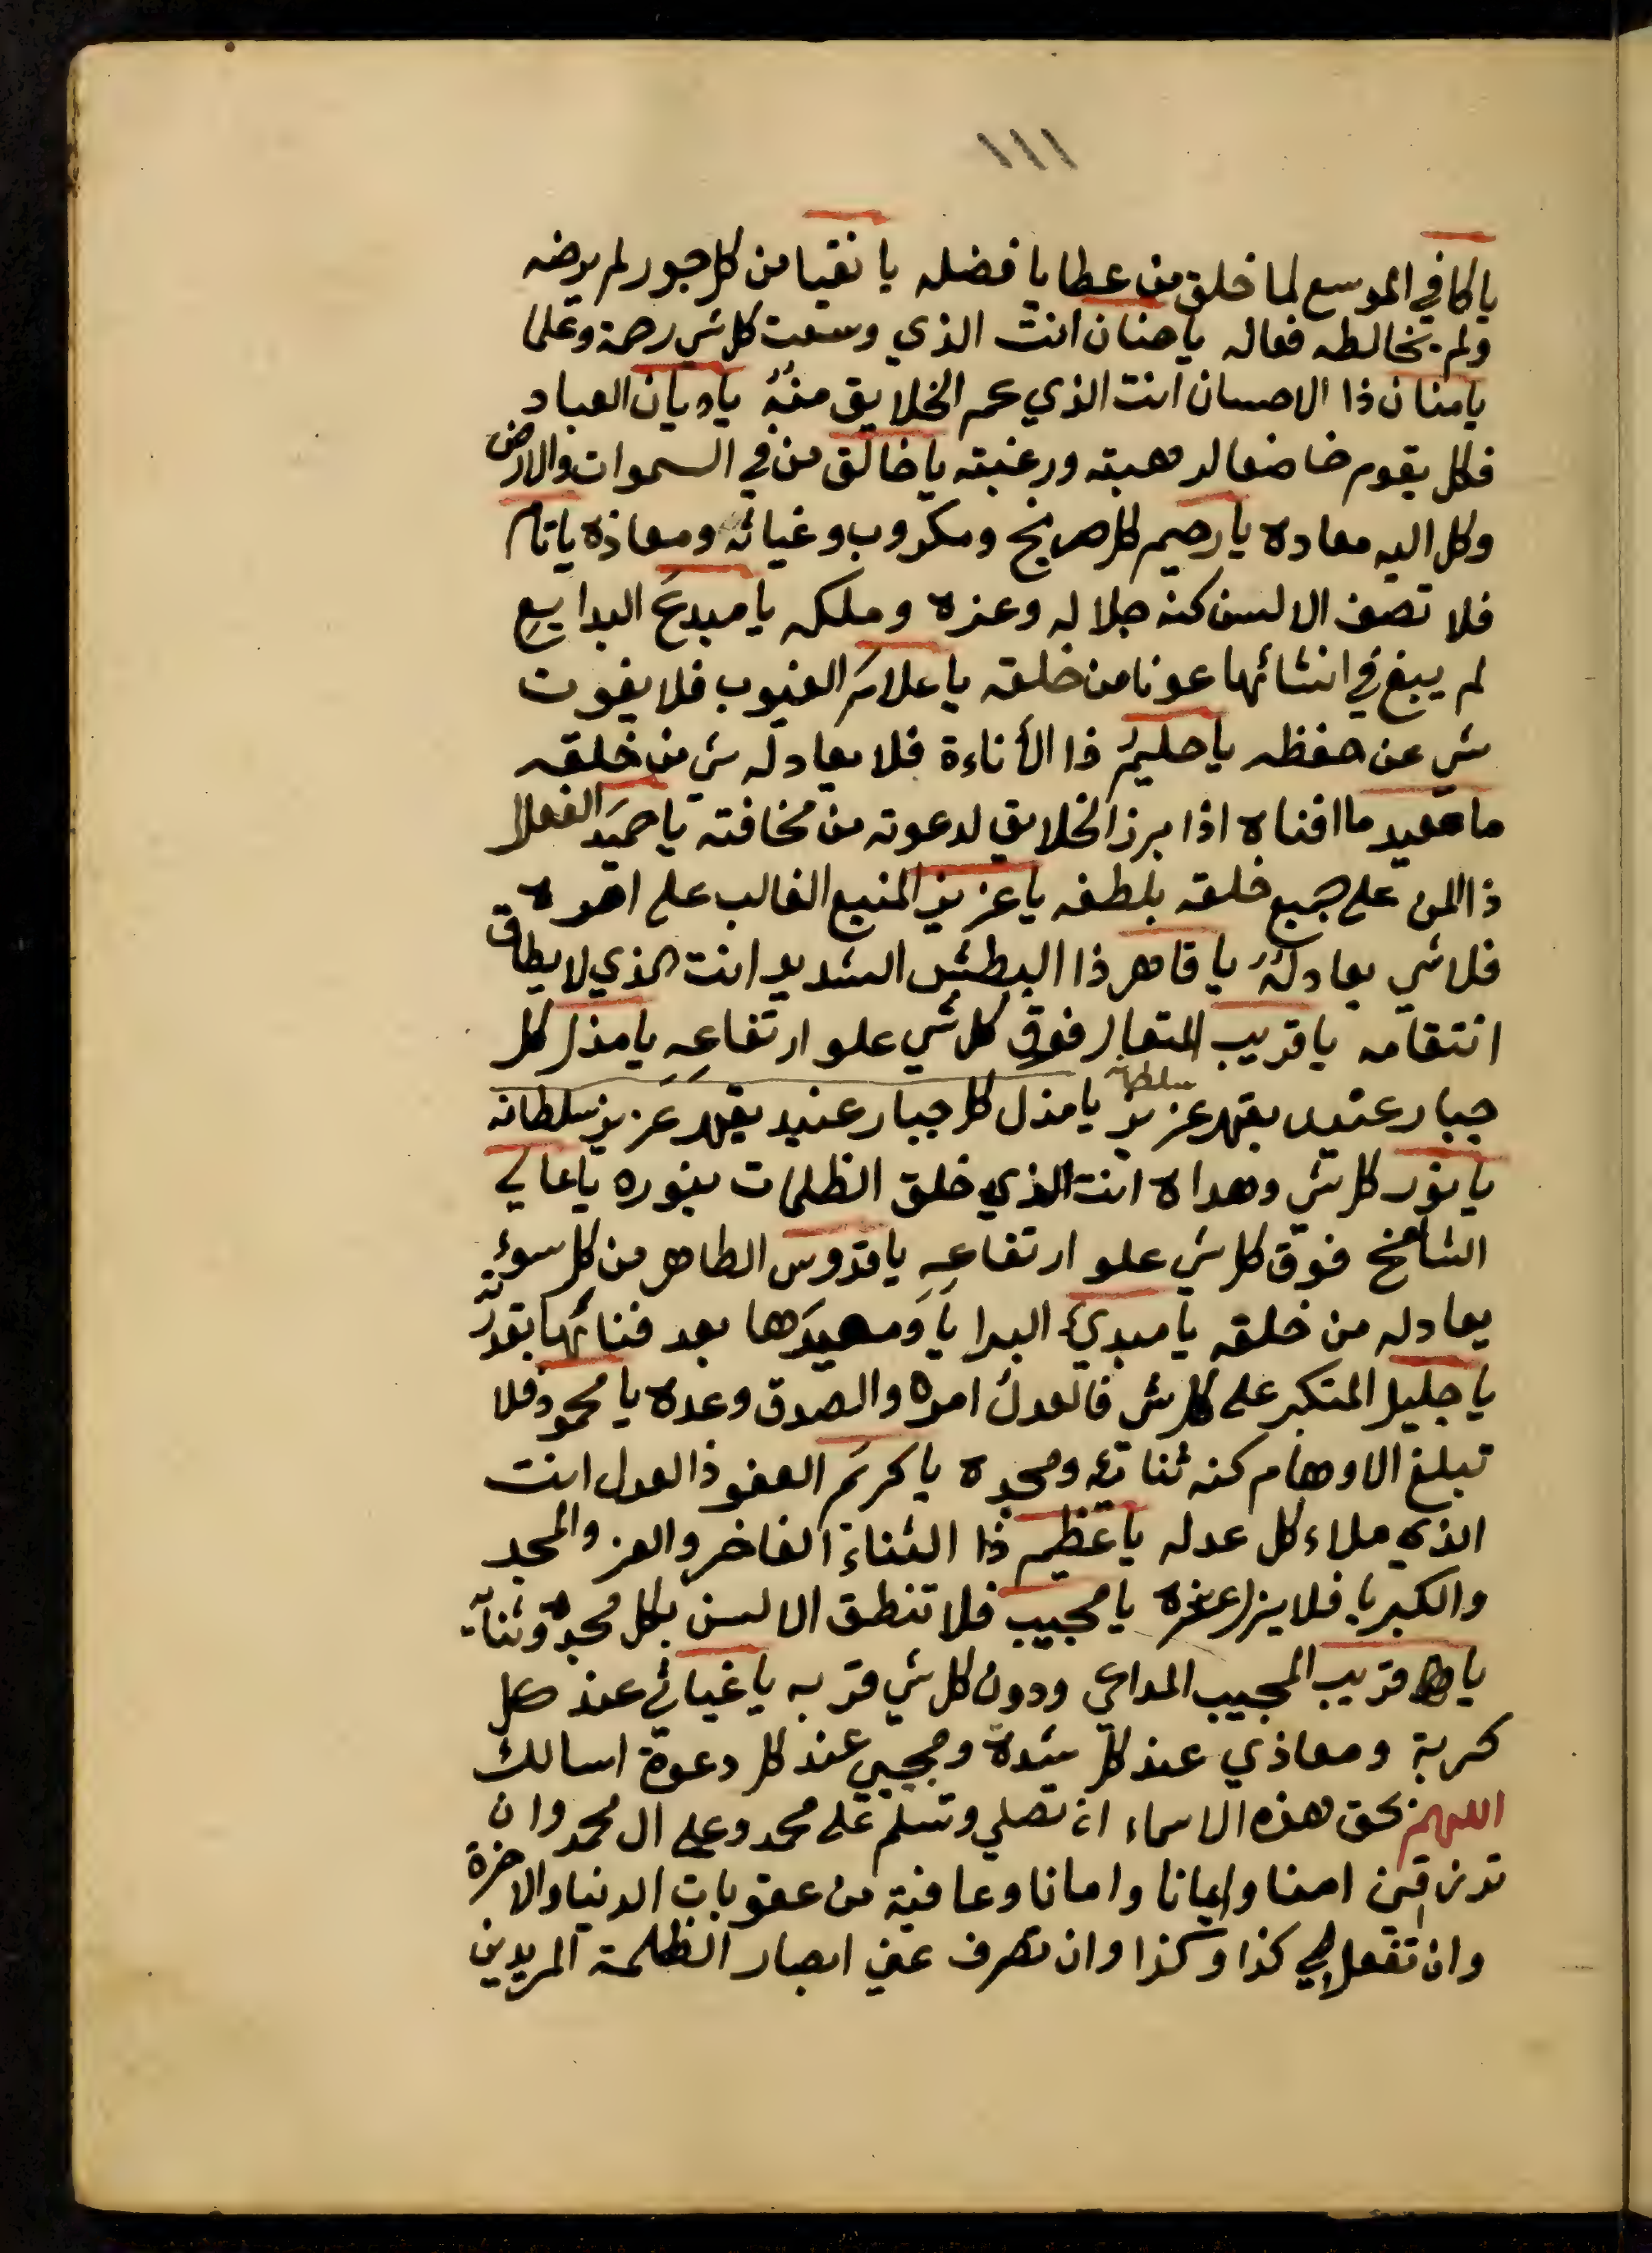 ١١١
يا كافي الموسع لما خلق من عطايا فضله يا نقيا من كل جور لم يرضه
ولم يخالطه فعاله يا حنان انت الذي وسعت كل شي رحمة وعلما
يا منان ذا الاحسان انت الذي عم الخلايق منُهُ يا ديان العباد
فكل يقوم خاضعا لرهبته ورغبته يا خالق من في السموات والارض
وكل اليه معاده يا رحيم كل صريخ ومكروب وغياثه ومعاذه يا تام
فلا تصف الالسن كنه جلاله وعزه وملكه يا مبدعَ البدايعِ
لم يبغ في انشائها عونا من خلقه يا علامَ الغيوب فلا يفوت
شي عن حفظه يا حليمُ ذا الأناءة فلا يعادله شي من خلقه
يا معيد ما افناه اذا برز الخلايق لدعوته من مخافته يا حميدَ الفعال
ذا المن على جميع خلقه بلطفه يا عزيز المنيع الغالب على امره
فلا شي يعادلُهُ يا قاهر ذا البطش الشديد انت الذي لا يطاق
انتقامه يا قريب المتعال فوق كل شي علو ارتفاعِهِ يا مذل كل
جبار عنيد بقهر عزيز سلطانه يا مذل كل جبار عنيد بقهر عَزيز سلطانه
يا نور كل شي وهداه انت الذي خلق الظلمات بنوره يا عالي
الشامخ فوق كل شي علو ارتفاعِهِ يا قدوس الطاهر من كل سوءٍ
يعادله من خلقه يا مبديَ البرايَا ومعيدَها بعد فنائها بقدرته
يا جليل المتكبر على كل شي فالعدلُ امره والصدق وعده يا محمود فلا
تبلغ الاوهام كنه ثنائه ومجده يا كريمَ العفو ذا العدل انت
الذي ملاء كل عدله يا عظيم ذا الثناءِ الفاخر والعز والمجد
والكبريا فلا يزل عزه يا مجيب فلا تنطق الالسن بكل مجده وثنآئه
يا قريب المجيب المداعي ودون كل شي قربه يا غياثي عند كل
كربة ومعاذي عند كل شدة ومجيبي عند كل دعوة اسالك
اللهم بحق هذه الاسماء ان تصلي وتسلم على محمد وعلى ال محمد وان
ترزقني امنا وايمانا وامانا وعافية من عقوبات الدنيا والاخرة
وان تفعل لي كذا وكذا وان تصرف عني ابصار الظلمة المريدين